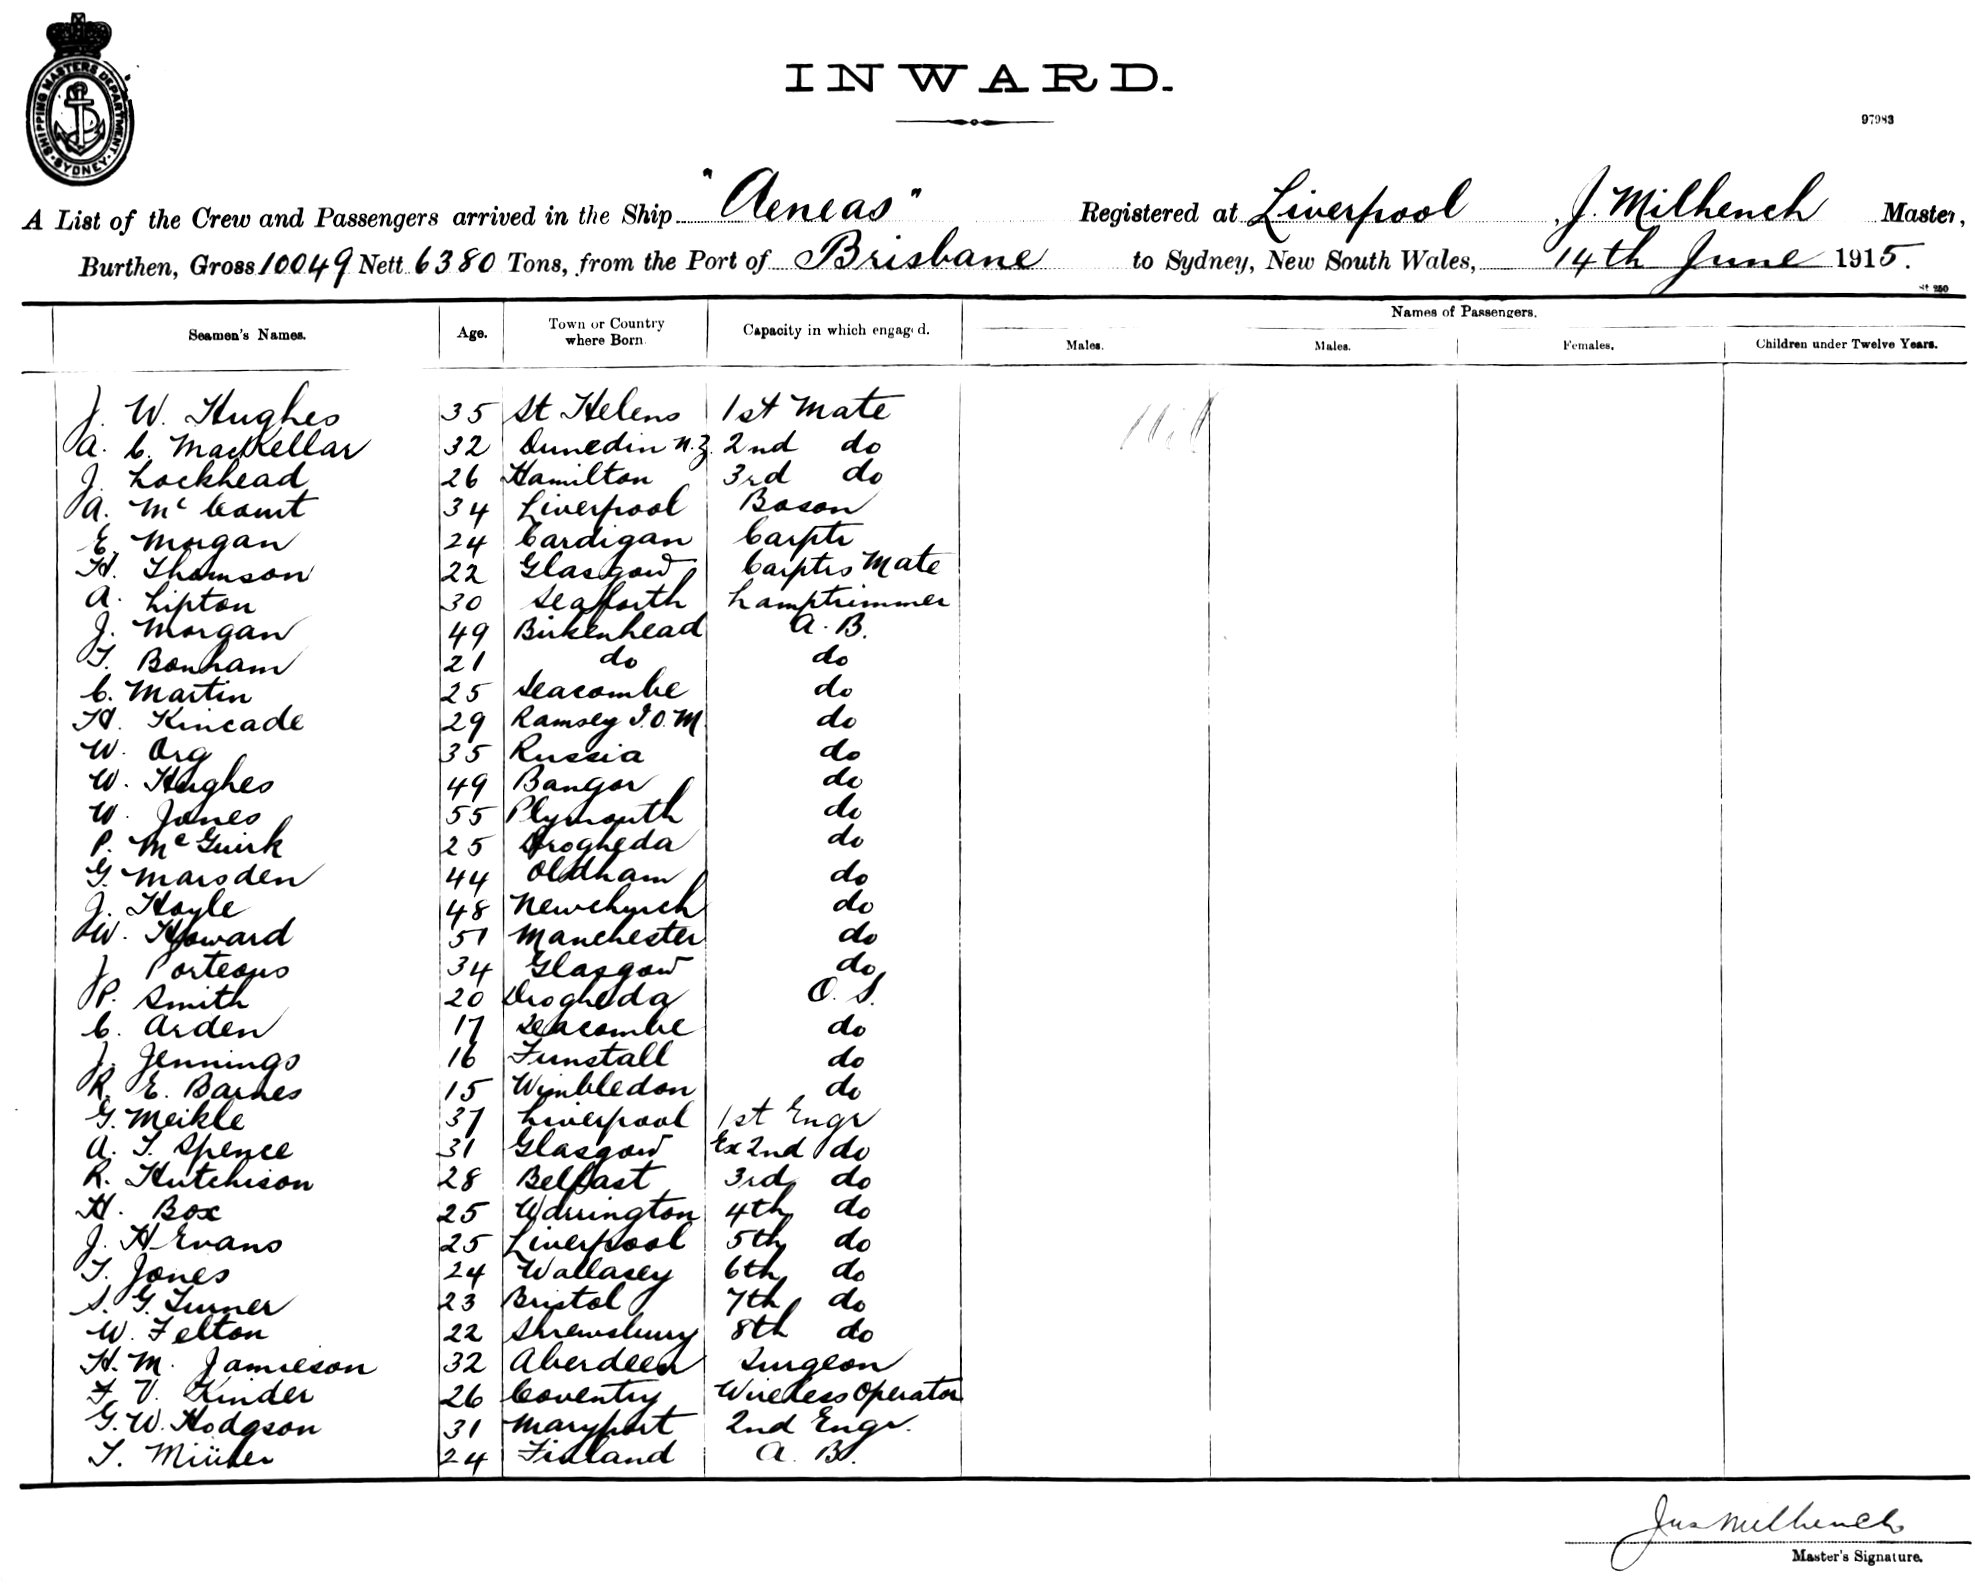 SHIPPING MASTERS DEPARTMENT · SYDNEY ·
INWARD.
97983
A List of the Crew and Passengers arrived in the Ship "Aeneas" Registered at Liverpool, J. Milhench Master,
Burthen, Gross 10049 Nett 6380 Tons, from the Port of Brisbane to Sydney, New South Wales, 14th June 1915.
St 250
Names of Passengers.
Seamen's Names. Age. Town or Country where Born. Capacity in which engaged. Males. Males. Females. Children under Twelve Years.
J. W. Hughes 35 St Helens 1st Mate Nil
A. C. MacKellar 32 Dunedin N.Z. 2nd do
J. Lockhead 26 Hamilton 3rd do
A. Mc Court 34 Liverpool Boson
E. Morgan 24 Cardigan Carptr
H. Thomson 22 Glasgow Carptrs Mate
A. Lipton 30 Seaforth Lamptrimmer
J. Morgan 49 Birkenhead A. B.
T. Bonham 21 do do
C. Martin 25 Seacombe do
H. Kincade 29 Ramsey I.O.M. do
W. Org 35 Russia do
W. Hughes 49 Bangor do
W. Jones 55 Plymouth do
P. McGuirk 25 Drogheda do
G. Marsden 44 Oldham do
J. Hoyle 48 Newchurch do
W. Howard 51 Manchester do
J. Porteous 34 Glasgow do
P. Smith 20 Drogheda O. S.
C. Arden 17 Seacombe do
J. Jennings 16 Tunstall do
R. E. Barnes 15 Wimbledon do
G. Meikle 37 Liverpool 1st Engr
A. T. Spence 31 Glasgow Ex 2nd do
R. Hutchison 28 Belfast 3rd do
H. Box 25 Warrington 4th do
J. H Evans 25 Liverpool 5th do
T. Jones 24 Wallasey 6th do
S. G. Turner 23 Bristol 7th do
W. Felton 22 Shrewsbury 8th do
H. M. Jamieson 32 Aberdeen Surgeon
F. V. Kinder 26 Coventry Wireless Operator
G. W. Hodgson 31 Maryport 2nd Engr.
T. 24 Finland A. B.
Jas Milhench
Master's Signature.